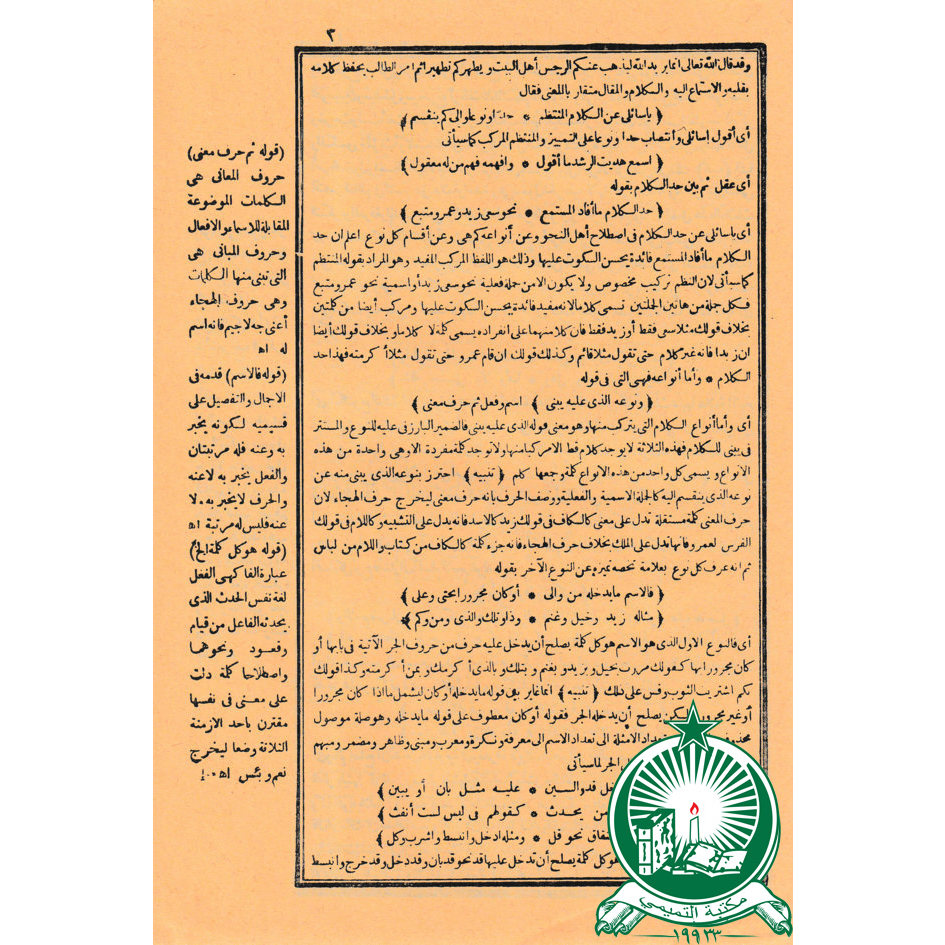 ٣
وقد قال الله تعالى انما يريد الله ليذهب عنكم الرجس أهل البيت ويطهركم تطهيرا ثم امر الطالب بحفظ كلامه
بقلبه والاستماع اليه والكلام والمقال متقار بالمعنى فقال
﴿ ياسائلى عن الكلام المنتظم * حدا ونوعا والى كم ينقسم ﴾
أى أقول ياسائلى وانتصاب حدا ونوعا على التمييز والمنتظم المركب كما سيأتى
﴿ اسمع هديت الرشد ما أقول * وافهمه فهم من له معقول ﴾
أى عقل ثم بين حد الكلام بقوله
﴿ حد الكلام ما أفاد المستمع * نحو سعى زيد وعمرو متبع ﴾
أى ياسائلى عن حد الكلام فى اصطلاح أهل النحو وعن أنواعه كم هى وعن أقسام كل نوع اعلم ان حد
الكلام ما أفاد المستمع فائدة يحسن السكوت عليها وذلك هو اللفظ المركب المفيد وهو المراد بقوله المنتظم
كما سيأتى لان النظم تركيب مخصوص ولا يكون الامن جملة فعلية نحو سعى زيد أو اسمية نحو عمرو متبع
فكل جملة من هاتين الجملتين تسمى كلاما لانه مفيد فائدة يحسن السكوت عليها ومركب أيضا من كلمتين
بخلاف قولك مثلا سعى فقط أو زيد فقط فان كلا منهما على انفراده يسمى كلمة لا كلاما وبخلاف قولك أيضا
ان زيدا فانه غير كلام حتى تقول مثلا قائم وكذلك قولك ان قام عمرو حتى تقول مثلا أكرمته فهذا حد
الكلام * وأما أنواعه فهى التى فى قوله
﴿ ونوعه الذى عليه يبنى * اسم وفعل ثم حرف معنى ﴾
أى وأما أنواع الكلام التى يتركب منها وهو معنى قوله الذى عليه يبنى فالضمير البارز فى عليه للنوع والمستتر
فى يبنى للكلام فهذه الثلاثة لا يوجد كلام قط الامركبا منها ولا توجد كلمة مفردة الا وهى واحدة من هذه
الانواع ويسمى كل واحد من هذه الانواع كلمة وجمعها كلم ﴿ تنبيه ﴾ احترز بنوعه الذى يبنى منه عن
نوعه الذى ينقسم اليه كالجملة الاسمية والفعلية ووصف الحرف بانه حرف معنى ليخرج حرف الهجاء لان
حرف المعنى كلمة مستقلة تدل على معنى كالكاف فى قولك زيد كالاسد فانه يدل على التشبيه وكاللام فى قولك
الفرس لعمرو فانها تدل على الملك بخلاف حرف الهجاء فانه جزء كلمة كالكاف من كتاب واللام من لباس
ثم انه عرف كل نوع بعلامة تخصه تميزه عن النوع الآخر بقوله
﴿ فالاسم ما يدخله من والى * أو كان مجرورا بحتى وعلى ﴾
﴿ مثاله زيد وخيل وغنم * وذا وتلك والذى ومن وكم ﴾
أى فالنوع الاول الذى هو الاسم هو كل كلمة يصلح أن يدخل عليه حرف من حروف الجر الآتية فى بابها أو
كان مجرورا بها كقولك مررت بخيل وبزيد وبغنم وبتلك وبالذى أكرمك وبمن أكرمته وكذا قولك
بكم اشتريت الثوب وقس على ذلك ﴿ تنبيه ﴾ انما غاير بين قوله ما يدخله أو كان ليشمل ما اذا كان مجرورا
أو غير مجرور لكن يصلح أن يدخله الجر فقوله أو كان معطوف على قوله ما يدخله وهو صلة موصول
محذوف تعداد الامثلة الى تعداد الاسم الى معرفة ونكرة ومعرب ومبنى وظاهر ومضمر ومبهم
الجر لما سيأتى
قد والسين * عليه مثل بان أو يبين ﴾
من يحدث * كقولهم فى ليس لست أنفث ﴾
اشتقاق نحو قل * ومثله ادخل وانبسط واشرب وكل ﴾
هو كل كلمة يصلح أن تدخل عليها قد نحو قد بان وقد دخل وقد خرج وانبسط
(قوله ثم حرف معنى)
حروف المعانى هى
الكلمات الموضوعة
المقابلة للاسماء والافعال
وحروف المبانى هى
التى تبنى منها الكلمات
وهى حروف الهجاء
أعنى جه لا جيم فانه اسم
له اه
(قوله فالاسم) قدمه فى
الاجمال والتفصيل على
قسيميه لكونه يخبر
به وعنه فله مرتبتان
والفعل يخبر به لا عنه
والحرف لا يخبر به ولا
عنه فليس له مرتبة اه
(قوله هو كل كلمة الخ)
عبارة الفاكهى الفعل
لغة نفس الحدث الذى
يحدثه الفاعل من قيام
وقعود ونحوهما
واصطلاحا كلمة دلت
على معنى فى نفسها
مقترن باحد الازمنة
الثلاثة وضعا ليخرج
نعم وبئس اه
مكتبة التميمي
١٩٩٣٣